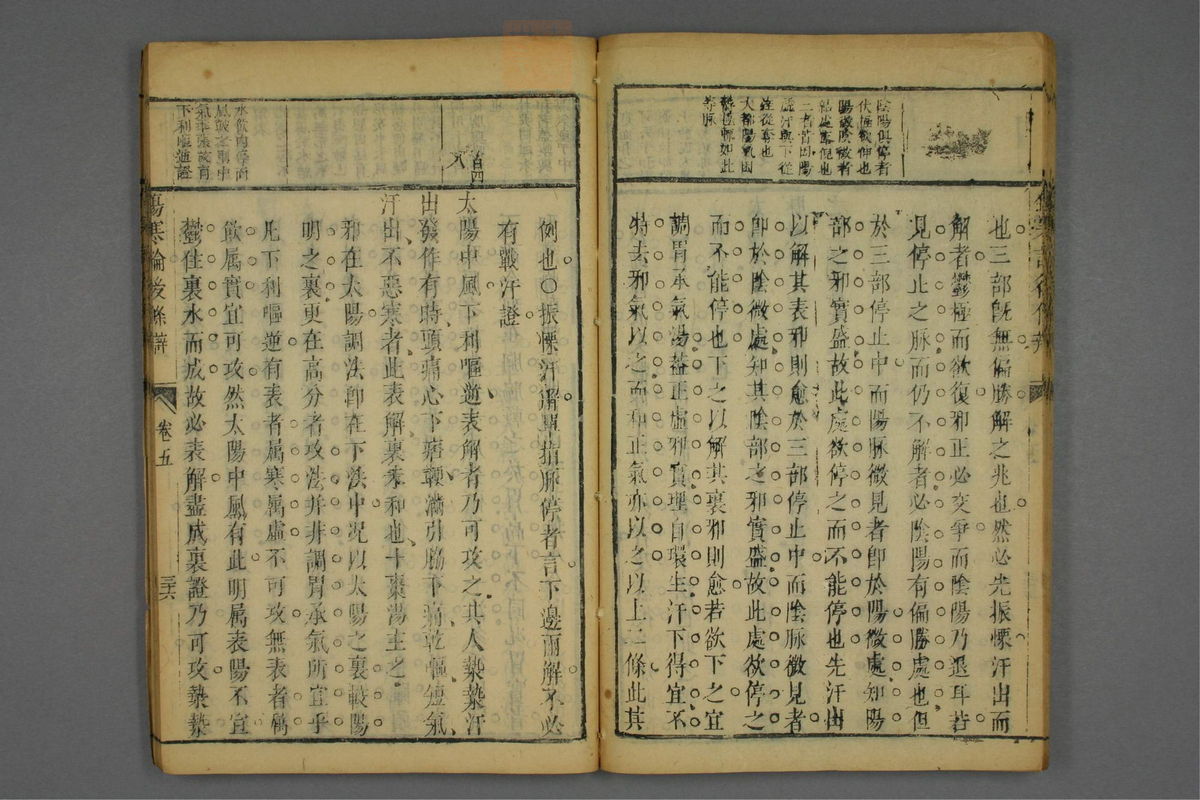 陰陽俱停者
伏極欲伸也
陽微陰微者
二者皆因陽
虛汗與下從
注從奪也
大都陽氣因
也三部既無偏勝解之兆也然必先振慄汗出而
解者鬱極而欲復邪正必交爭而陰陽乃退耳若
見停止之脉而仍不解者必陰陽有偏勝處也但
於三部停止中而陽脉微見者卽於陽微處知陽
部之邪實盛故此處欲停之而不能停也先汗出
以解其表邪則愈於三部停止中而陰脉微見者
卽於陰微處知其陰部之邪實盛故此處欲停之
而不能停也下之以解其裏邪則愈若欲下之宜
調胃承氣湯蓋正虛邪實理自環生汗下得宜不
特去邪氣以之而和正氣亦以之以上二條此其
例也○振慄汗解單指脉停者言下邊爾解不必
有戰汗證
百四
八
太陽中風下利嘔逆表解者乃可攻之其人漐漐汗
出發作有時頭痛心下痞鞕滿引脇下痛乾嘔短氣
汗出不惡寒者此表解裏未和也十棗湯主之
邪在太陽調法卽在下法中況以太陽之裏較陽
明之裏更在高分者攻法并非調胃承氣所宜乎
凡下利嘔逆有表者屬寒屬虛不可攻無表者屬
飲屬實宜可攻然太陽中風有此明屬表陽不宜
鬱住裏水而成故必表解盡成裏證乃可攻漐漐
水飲內停而
氣上張故有
下利嘔逆證
傷寒論後條辯
卷五
三六